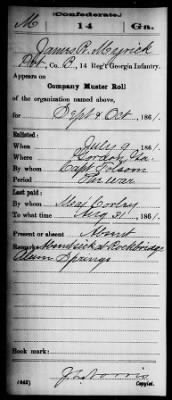 (Confederate.)
M 14 Ga.
James R. Myrick
Pvt, Co. B, 14 Reg't Georgia Infantry.
Appears on
Company Muster Roll
of the organization named above,
for Sept & Oct, 1861.
Enlisted:
When July 9, 1861.
Where Gordon, Ga.
By whom Capt Folsom
Period The war
Last paid:
By whom Maj Corley
To what time Aug 31, 1861.
Present or absent Absent
Remarks: Absent sick at Rockbridge
Alum Springs
(642)
Copyist.